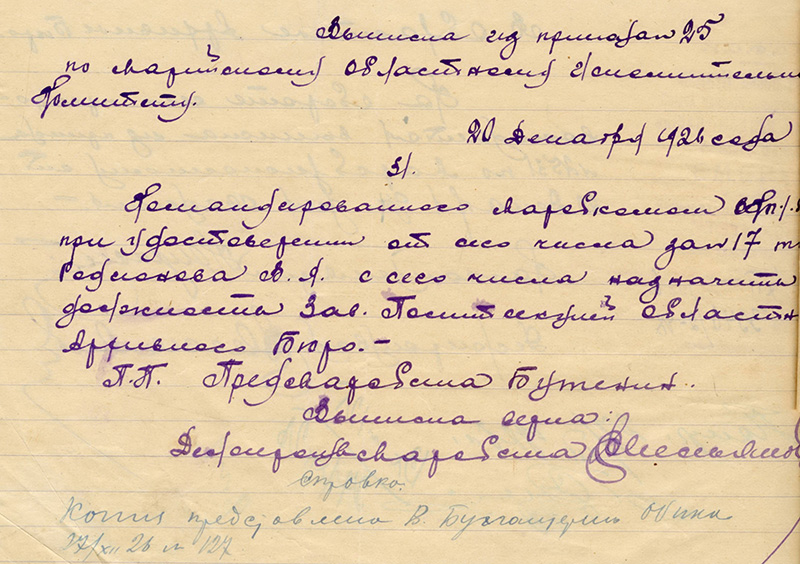 Выписка из приказа 25
по Марийскому Областному Исполнительно
Комитету.
20 Декабря 1926 года
31.
Командированного Маробкомом ВКП/
при удостоверении от сего числа за № 17 т
Родионова В. А. с сего числа назначить
должность Зав. Политсекцией Областн
Архивного Бюро.-
П.П. Пред. Маробисп Бутенин.
Выписка верна:
Делопроизв. Маробисп
Справка.
Копия представлена в Бухгалтерию Обика
17/XII 26 № 127